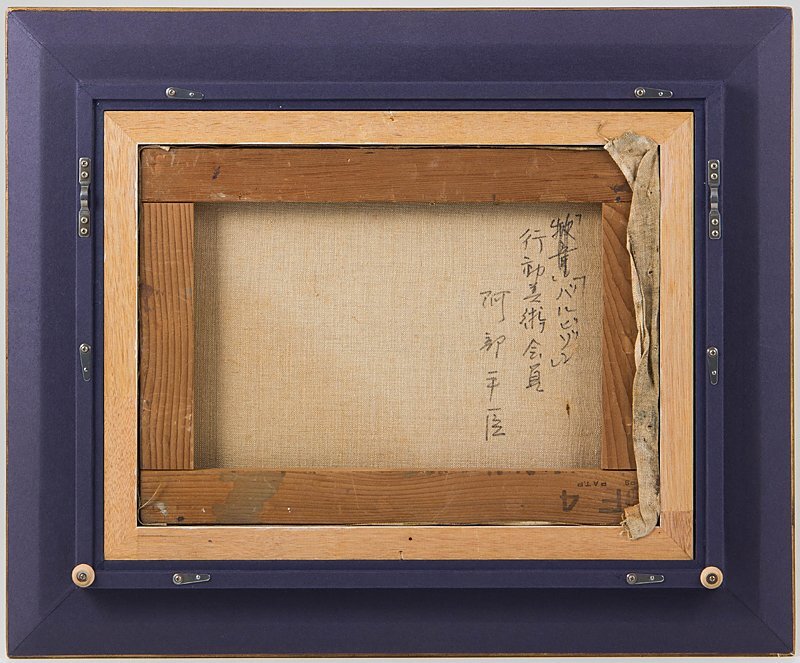 「牧童」「バルビゾン」
行動美術会員
阿部平臣
F 4